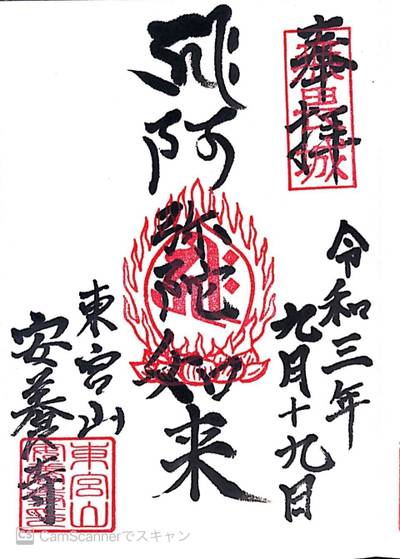 奉拝
令和三年
九月十九日
阿弥陀如来
東宮山
安養寺
東宮山
安養寺
CS CamScannerでスキャン